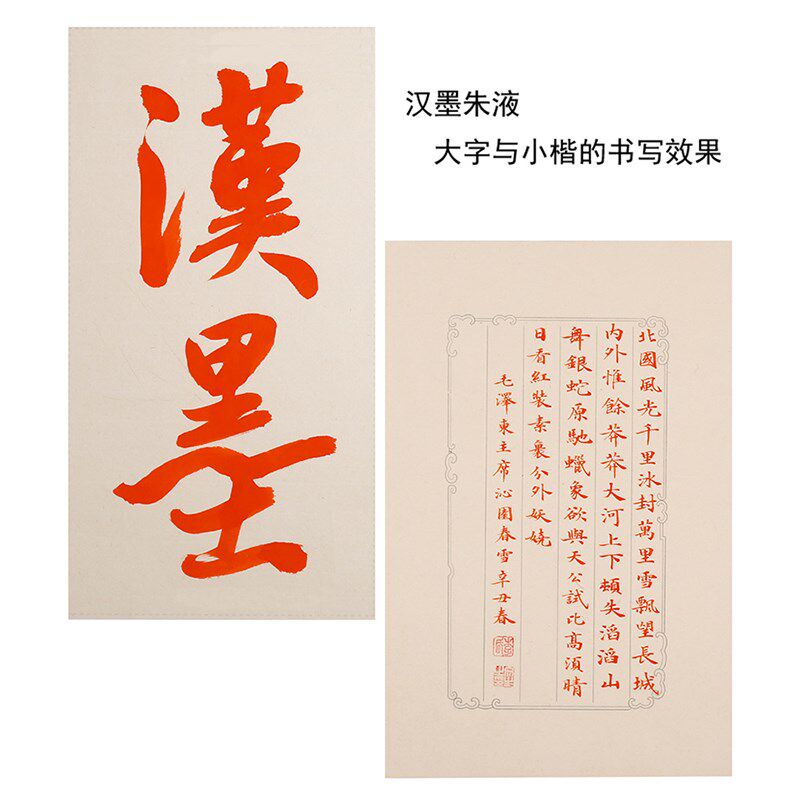 漢墨
汉墨朱液
大字与小楷的书写效果
北國風光千里冰封萬里雪飄望長城
内外惟餘莽莽大河上下頓失滔滔山
舞銀蛇原馳蠟象欲與天公試比高須晴
日看紅裝素裹分外妖嬈
毛澤東主席沁園春雪辛丑春